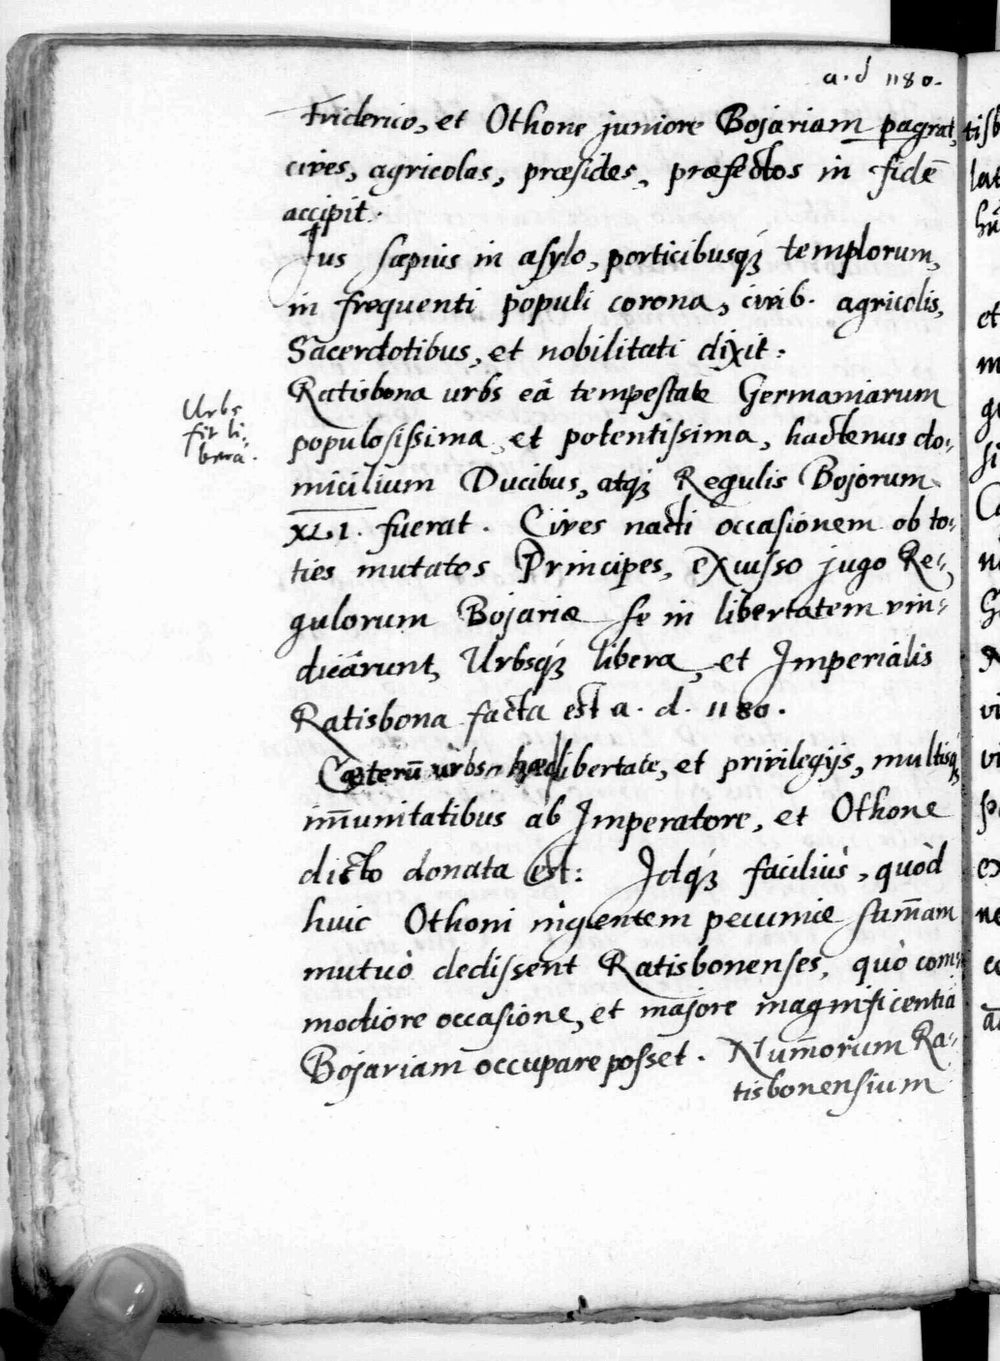 a. d 1180.
Friderico, et Othone juniore Bojariam pagrat,
cives, agricolas, præsides, præfectos in fidē
accipit.
Jus sæpius in asylo, porticibusq́ꝫ templorum,
in frequenti populi corona, civib. agricolis,
Sacerdotibus, et nobilitati dixit.
Ratisbona urbs eâ tempestate Germaniarum
Urbs
fit li-
bera.
populosissima, et potentissima, hactenus do-
micilium Ducibus, atqꝫ Regulis Bojorum
XLI. fuerat. Cives nacti occasionem ob to-
ties mutatos Principes, excusso jugo Re-
gulorum Bojariæ se in libertatem vin-
dicârunt, Urbsq́ꝫ libera, et Imperialis
Ratisbona facta est a. d. 1180.
Cæterū urbs hæc libertate, et privilegijs, multisq́ꝫ
im̄unitatibus ab Imperatore, et Othone
dicto donata est: Idq́ꝫ faciliùs, quòd
huic Othoni ingentem pecuniæ sum̄am
mutuò dedissent Ratisbonenses, quò com-
modiore occasione, et majore magnificentiâ
Bojariam occupare posset. Num̄orum Ra-
tisbonensium